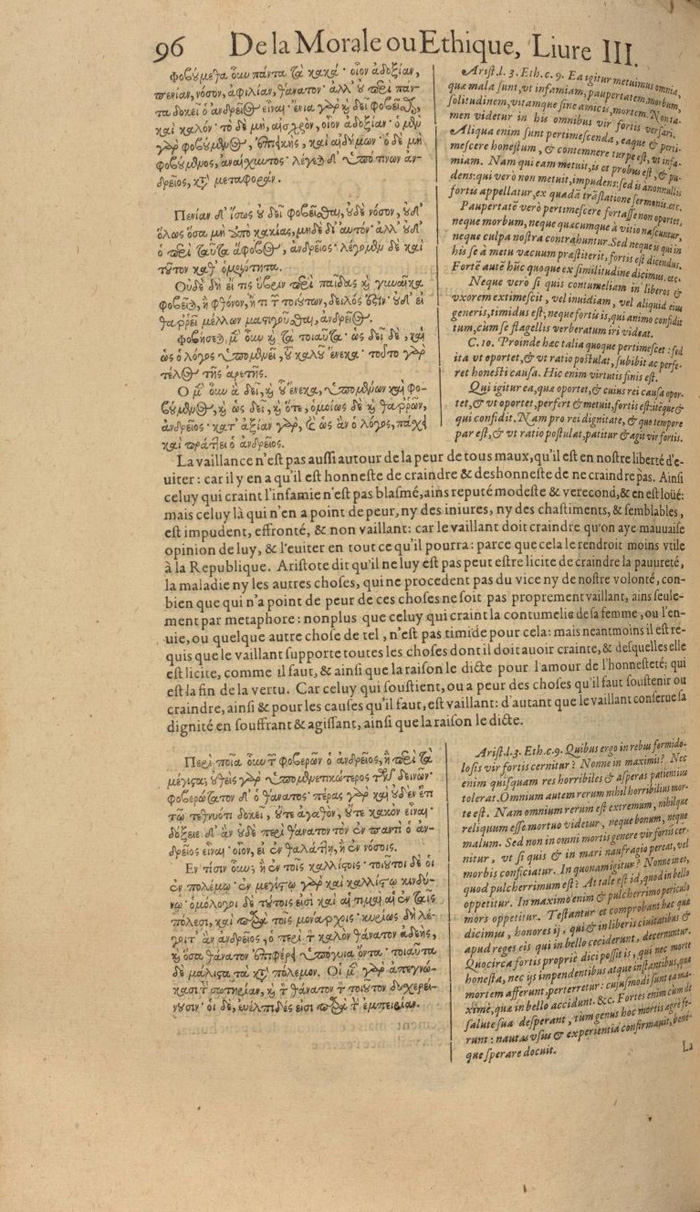 96 De la Morale ou Ethique, Liure III.
φοβούμεθα οὖν πάντα τὰ κακά· οἷον ἀδοξίαν,
πενίαν, νόσον, ἀφιλίαν, θάνατον· ἀλλ' οὐ περὶ πάν-
τα δοκεῖ ὁ ἀνδρεῖος εἶναι· ἔνια γὰρ καὶ δεῖ φοβεῖσθαι,
καὶ καλόν· τὸ δὲ μὴ, αἰσχρὸν, οἷον ἀδοξίαν· ὁ μὲν
γὰρ φοβούμενος, ἐπιεικὴς, καὶ αἰδήμων· ὁ δὲ μὴ
φοβούμενος, ἀναίσχυντος· λέγεται δ' ὑπό τινων ἀν-
δρεῖος, κατὰ μεταφοράν.
Πενίαν δ' ἴσως οὐ δεῖ φοβεῖσθαι, οὐδὲ νόσον, οὐδ'
ὅλως ὅσα μὴ ὑπὸ κακίας, μηδὲ δι' αὐτόν· ἀλλ' οὐδ'
ὁ περὶ ταῦτα ἄφοβος, ἀνδρεῖος· λέγομεν δὲ καὶ
τοῦτον καθ' ὁμοιότητα.
Οὐδὲ δὴ εἴ τις ὕβριν περὶ παῖδας καὶ γυναῖκα
φοβεῖται, ἢ φθόνον, ἤ τι τῶν τοιούτων, δειλός ἐστιν· οὐδ' εἰ
θαρρεῖ μέλλων μαστιγοῦσθαι, ἀνδρεῖος.
φοβήσεται μὲν οὖν καὶ τὰ τοιαῦτα· ὡς δεῖ δὲ, καὶ
ὡς ὁ λόγος ὑπομενεῖ, τοῦ καλοῦ ἕνεκα· τοῦτο γὰρ
τέλος τῆς ἀρετῆς.
Ὁ μὲν οὖν ἃ δεῖ, καὶ οὗ ἕνεκα, ὑπομένων καὶ φο-
βούμενος, καὶ ὡς δεῖ, καὶ ὅτε, ὁμοίως δὲ καὶ θαρρῶν,
ἀνδρεῖος· κατ' ἀξίαν γὰρ, καὶ ὡς ἂν ὁ λόγος, πάσχει
καὶ πράττει ὁ ἀνδρεῖος.
Arist. l. 3. Eth. c. 9. Ea igitur metuimus omnia,
quæ mala sunt, vt infamiam, paupertatem, morbum,
solitudinem, vitamque sine amicis, mortem. Non ta-
men videtur in his omnibus vir fortis versari.
Aliqua enim sunt pertimescenda, eaque & perti-
mescere honestum, & contemnere turpe est, vt infa-
miam. Nam qui eam metuit, is et probus est, & pu-
dens: qui verò non metuit, impudens: sed is à nonnullis
fortis appellatur, ex quadã trãslatione sermonis. etc.
Paupertatẽ verò pertimescere fortasse non oportet,
neque morbum, neque quacumque à vitio nascuntur,
neque culpa nostra contrahuntur. Sed neque is qui in
his se à metu vacuum præstiterit, fortis est dicendus.
Fortè autẽ hũc quoque ex similitudine dicimus. etc.
Neque vero si quis contumeliam in liberos &
vxorem extimescit, vel inuidiam, vel aliquid eius
generis, timidus est, neque fortis is, qui animo confidit
tum, cum se flagellis verberatum iri videat.
C. 10. Proinde hæc talia quoque pertimescet: sed
ita vt oportet, & vt ratio postulat, subibit ac perfe-
ret honesti causa. Hic enim virtutis finis est.
Qui igitur ea, quæ oportet, & cuius rei causa opor-
tet, & vt oportet, perfert & metuit, fortis est: itéque &
qui confidit. Nam pro rei dignitate, & quo tempore
par est, & vt ratio postulat, patitur & agit vir fortis.
La vaillance n'est pas aussi autour de la peur de tous maux, qu'il est en nostre liberté d'e-
uiter: car il y en a qu'il est honneste de craindre & deshonneste de ne craindre pas. Ainsi
celuy qui craint l'infamie n'est pas blasmé, ains reputé modeste & verecond, & en est loüé:
mais celuy là qui n'en a point de peur, ny des iniures, ny des chastiments, & semblables,
est impudent, effronté, & non vaillant: car le vaillant doit craindre qu'on aye mauuaise
opinion de luy, & l'euiter en tout ce qu'il pourra: parce que cela le rendroit moins vtile
à la Republique. Aristote dit qu'il ne luy est pas peut estre licite de craindre la pauureté,
la maladie ny les autres choses, qui ne procedent pas du vice ny de nostre volonté, con-
bien que qui n'a point de peur de ces choses ne soit pas proprement vaillant, ains seule-
ment par metaphore: nonplus que celuy qui craint la contumelie de sa femme, ou l'en-
uie, ou quelque autre chose de tel, n'est pas timide pour cela: mais neantmoins il est re-
quis que le vaillant supporte toutes les choses dont il doit auoir crainte, & desquelles elle
est licite, comme il faut, & ainsi que la raison le dicte pour l'amour de l'honnesteté; qui
est la fin de la vertu. Car celuy qui soustient, ou a peur des choses qu'il faut soustenir ou
craindre, ainsi & pour les causes qu'il faut, est vaillant: d'autant que le vaillant conserue sa
dignité en souffrant & agissant, ainsi que la raison le dicte.
Περὶ ποῖα οὖν τῶν φοβερῶν ὁ ἀνδρεῖος, ἢ περὶ τὰ
μέγιστα; οὐθεὶς γὰρ ὑπομενετικώτερος τῶν δεινῶν·
φοβερώτατον δ' ὁ θάνατος· πέρας γὰρ καὶ οὐδὲν ἔτι
τῷ τεθνεῶτι δοκεῖ, οὔτε ἀγαθὸν, οὔτε κακὸν εἶναι·
δόξειε δ' ἂν οὐδὲ περὶ θάνατον τὸν ἐν παντὶ ὁ ἀν-
δρεῖος εἶναι· οἷον, εἰ ἐν θαλάττῃ, ἢ ἐν νόσοις.
Ἐν τίσιν οὖν; ἢ ἐν τοῖς καλλίστοις· τοιοῦτοι δὲ οἱ
ἐν πολέμῳ· ἐν μεγίστῳ γὰρ καὶ καλλίστῳ κινδύ-
νῳ· ὁμόλογοι δὲ τούτοις εἰσὶ καὶ αἱ τιμαὶ αἱ ἐν ταῖς
πόλεσι, καὶ παρὰ τοῖς μονάρχοις· κυρίως δὴ λέ-
γοιτ' ἂν ἀνδρεῖος, ὁ περὶ τὸν καλὸν θάνατον ἀδεὴς,
καὶ ὅσα θάνατον ἐπιφέρει ὑπόγυια ὄντα· τοιαῦτα
δὲ μάλιστα τὰ κατὰ πόλεμον. Οἱ μὲν γὰρ ἀπεγνώ-
κασι τὴν σωτηρίαν, καὶ τὸν θάνατον τὸν τοιοῦτον δυσχεραί-
νουσιν· οἱ δὲ, εὐέλπιδές εἰσι παρὰ τὴν ἐμπειρίαν.
Arist. l. 3. Eth. c. 9. Quibus ergo in rebus formido-
losis vir fortis cernitur? Nonne in maximis? Nec
enim quisquam res horribiles & asperas patientius
tolerat. Omnium autem rerum nihil horribilius mor-
te est. Nam omnium rerum est extremum, nihilque
reliquum esse mortuo videtur, neque bonum, neque
malum. Sed non in omni mortis genere vir fortis cer-
nitur, vt si quis & in mari naufragio pereat, vel
morbis conficiatur. In quonam igitur? Nonne in eo,
quod pulcherrimum est? At tale est id, quod in bello
oppetitur. In maximo enim & pulcherrimo periculo
mors oppetitur. Testantur et comprobant hæc quæ
dicimus, honores ij, qui & in liberis ciuitatibus &
apud reges eis qui in bello ceciderunt, decernuntur.
Quocirca fortis propriè dici possit is, qui nec morte
honesta, nec ijs impendentibus atque instantibus, quæ
mortem afferunt, perterretur: cujusmodi sunt ea ma-
ximè, quæ in bello accidunt. &c. Fortes enim cum de
salute sua desperant, tum genus hoc mortis ægrè fe-
runt: nautas vsus & experientia confirmauit, bene-
que sperare docuit.
La